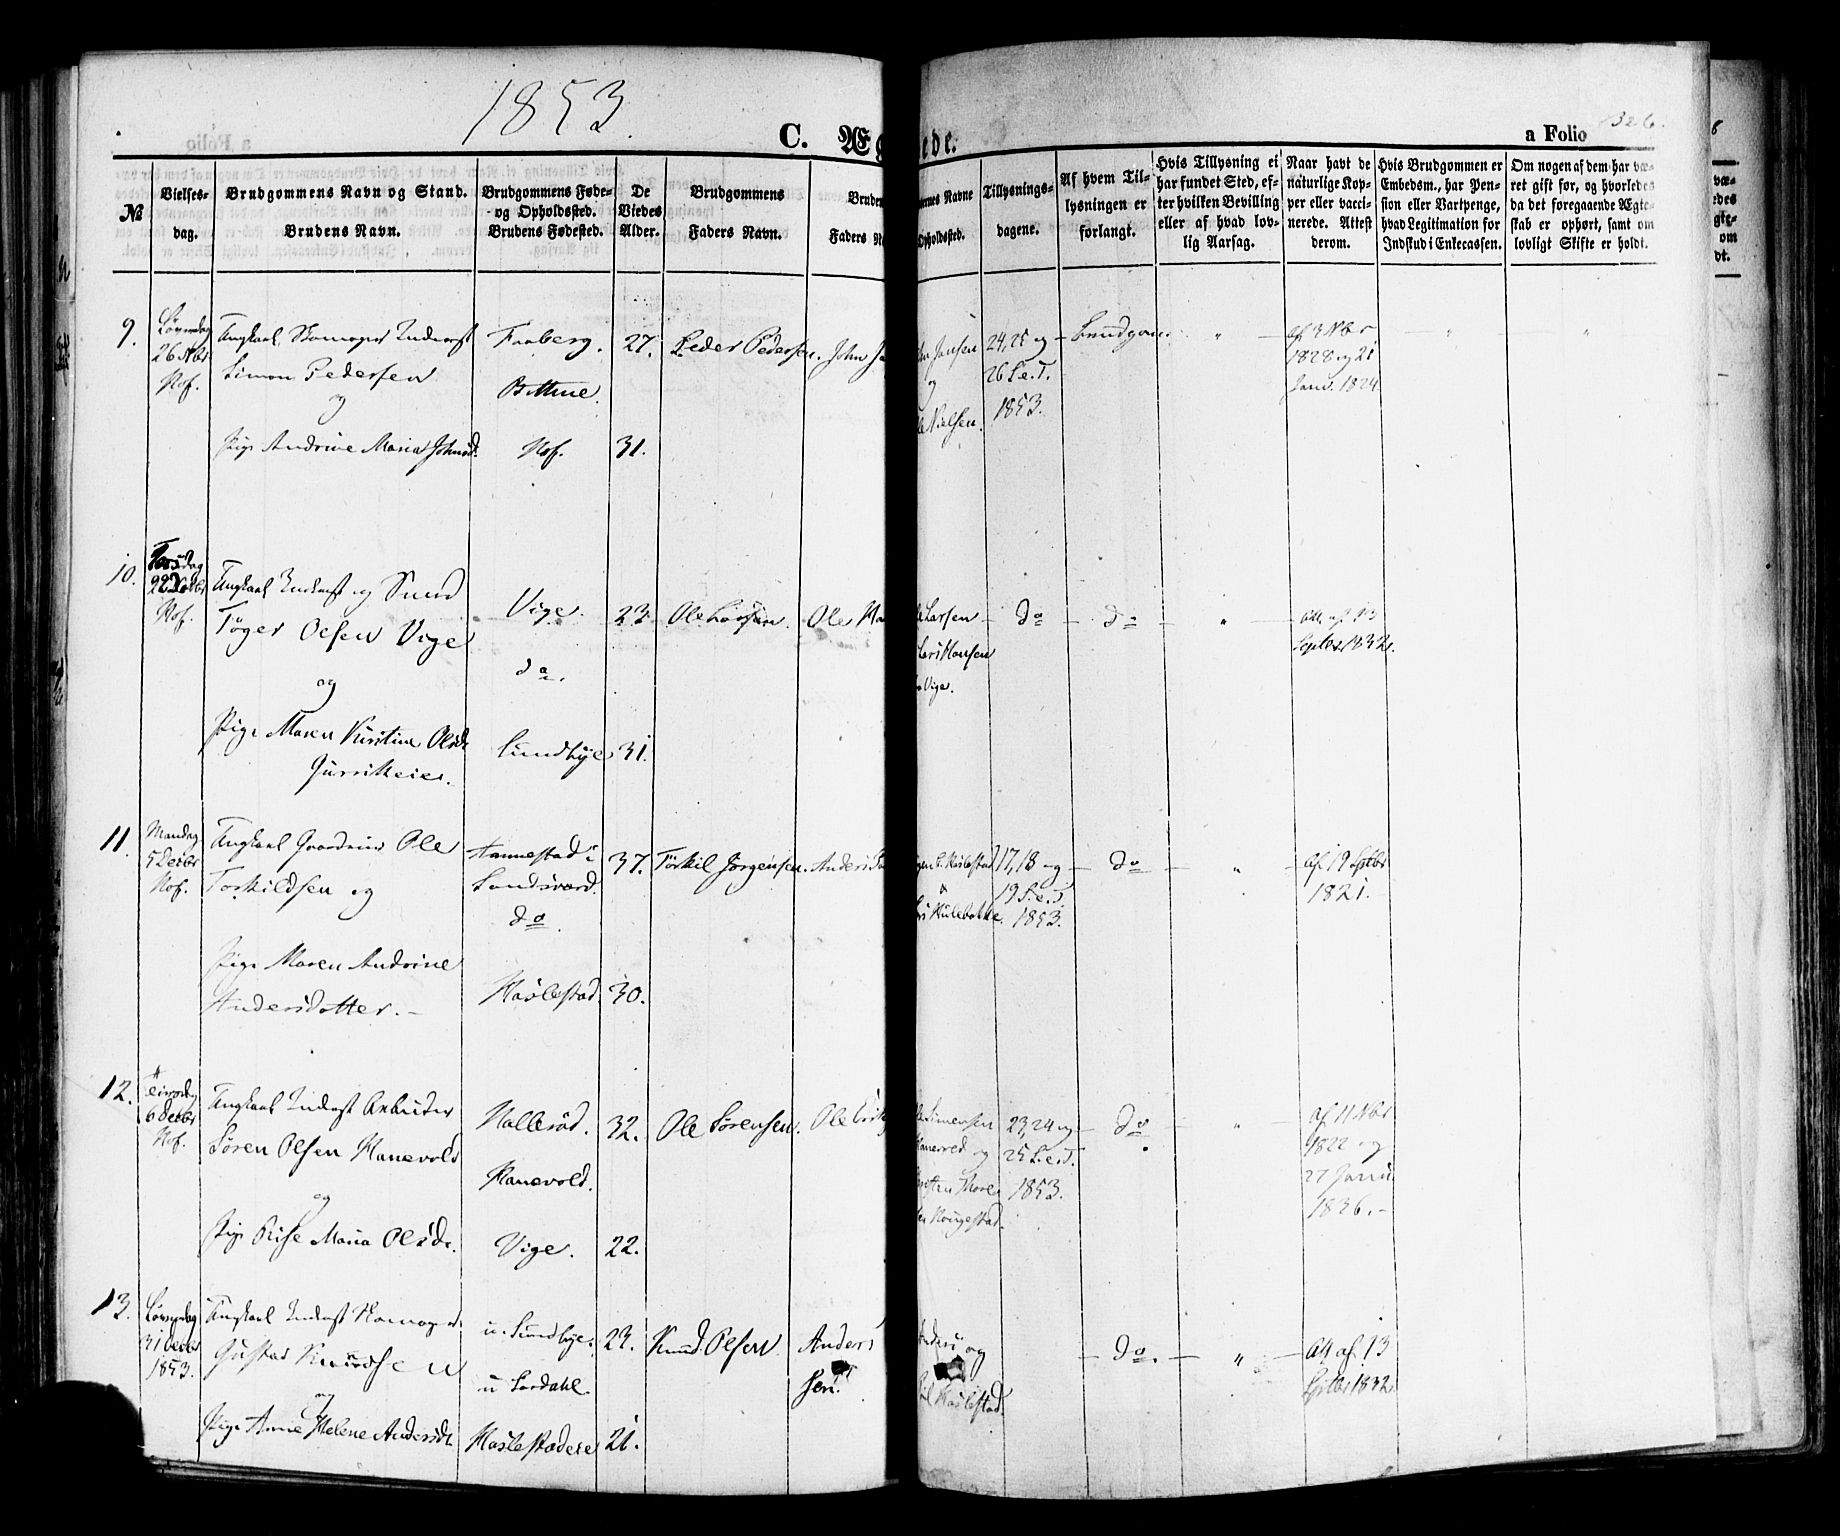 1853.
C. Æg
ede.
a Folio
326.
№
Vielses-
dag.
Brudgommens Navn og Stand.
Brudens Navn.
Brudgommens Føde-
og Opholdssted.
Brudens Fødested.
De
Viedes
Alder.
Brudgommens
Faders Navn.
Bruden
Faders Na
ernes Navne
Opholdsted.
Tillysnings-
dagene.
Af hvem Til-
lysningen er
forlangt.
Hvis Tillysning ei
har fundet Sted, ef-
ter hvilken Bevilling
eller af hvad lov-
lig Aarsag.
Naar havt de
naturlige Kop-
per eller vacci-
nerede. Attest
derom.
Hvis Brudgommen er
Embedsm., har Pen-
sion eller Vartpenge,
hvad Legitimation for
Indskud i Enkecassen.
Om nogen af dem har væ-
ret gift før, og hvorledes
da det foregaaende Ægte-
skab er ophørt, samt om
lovligt Skifte er holdt.
9.
Løverdag
26 Nbr
Hof.
Ungkarl Skomager Inderst
Simon Pedersen
og
Pige Andrine Maria Johnsd.
Faaberg.
Hof.
27.
31.
Peder Pedersen.
John Ja
Jansen
og
Nielsen.
24, 25 og
26 S.e.T.
1853.
Brudgomen
"
af 3 Nbr
1828 og 21
Janu. 1824
"
"
10.
Torsdag
22 Decbr
Hof.
Ungkarl Inderst og Smed
Tøger Olsen Vige
og
Pige Maren Kristine Olsdr
Vige.
do.
Sundbye
23.
31.
Ole Larsen.
Ole Ha
Larsen
Lars Hansen
Vige.
do
do
"
Att. af 13
Septbr 1832.
11.
Mandag
5 Decbr
Hof.
Ungkarl Gaardmd Ole
Torkildsen og
Pige Maren Andrine
Andersdatter.
Aannestad i
Sandsværd.
do
Haslestad
37.
30.
Torkil Jørgensen.
Anders
Haslestad
&
Kulebakke.
17, 18 og
19 S.e.T.
1853.
do
"
af 19 Sptbr
1821.
12.
6 Decbr
Hof.
Ungkarl Inderst Arbeider
Søren Olsen Hanevold
og
Pige Maria Olsdr.
Hallerød.
Hanevold.
Vige.
32.
22.
Ole Sørensen.
Ole
Simensen
og
23, 24 og
25 S.e.T.
1853.
do
"
af 11 Nbr
1822 og
27 Janu.
1836.
13.
Løverdag
31 Decbr
1853.
Ungkarl Inderst Skomager
Gustav Knudsen
og
Pige Anne Helene Andersdr
u. Sundbye.
Haslestadeie
23.
21.
Knud Olsen
Anders
sen.
Anders og
Haslestad.
do.
"
Att af 13
Sptbr 1832